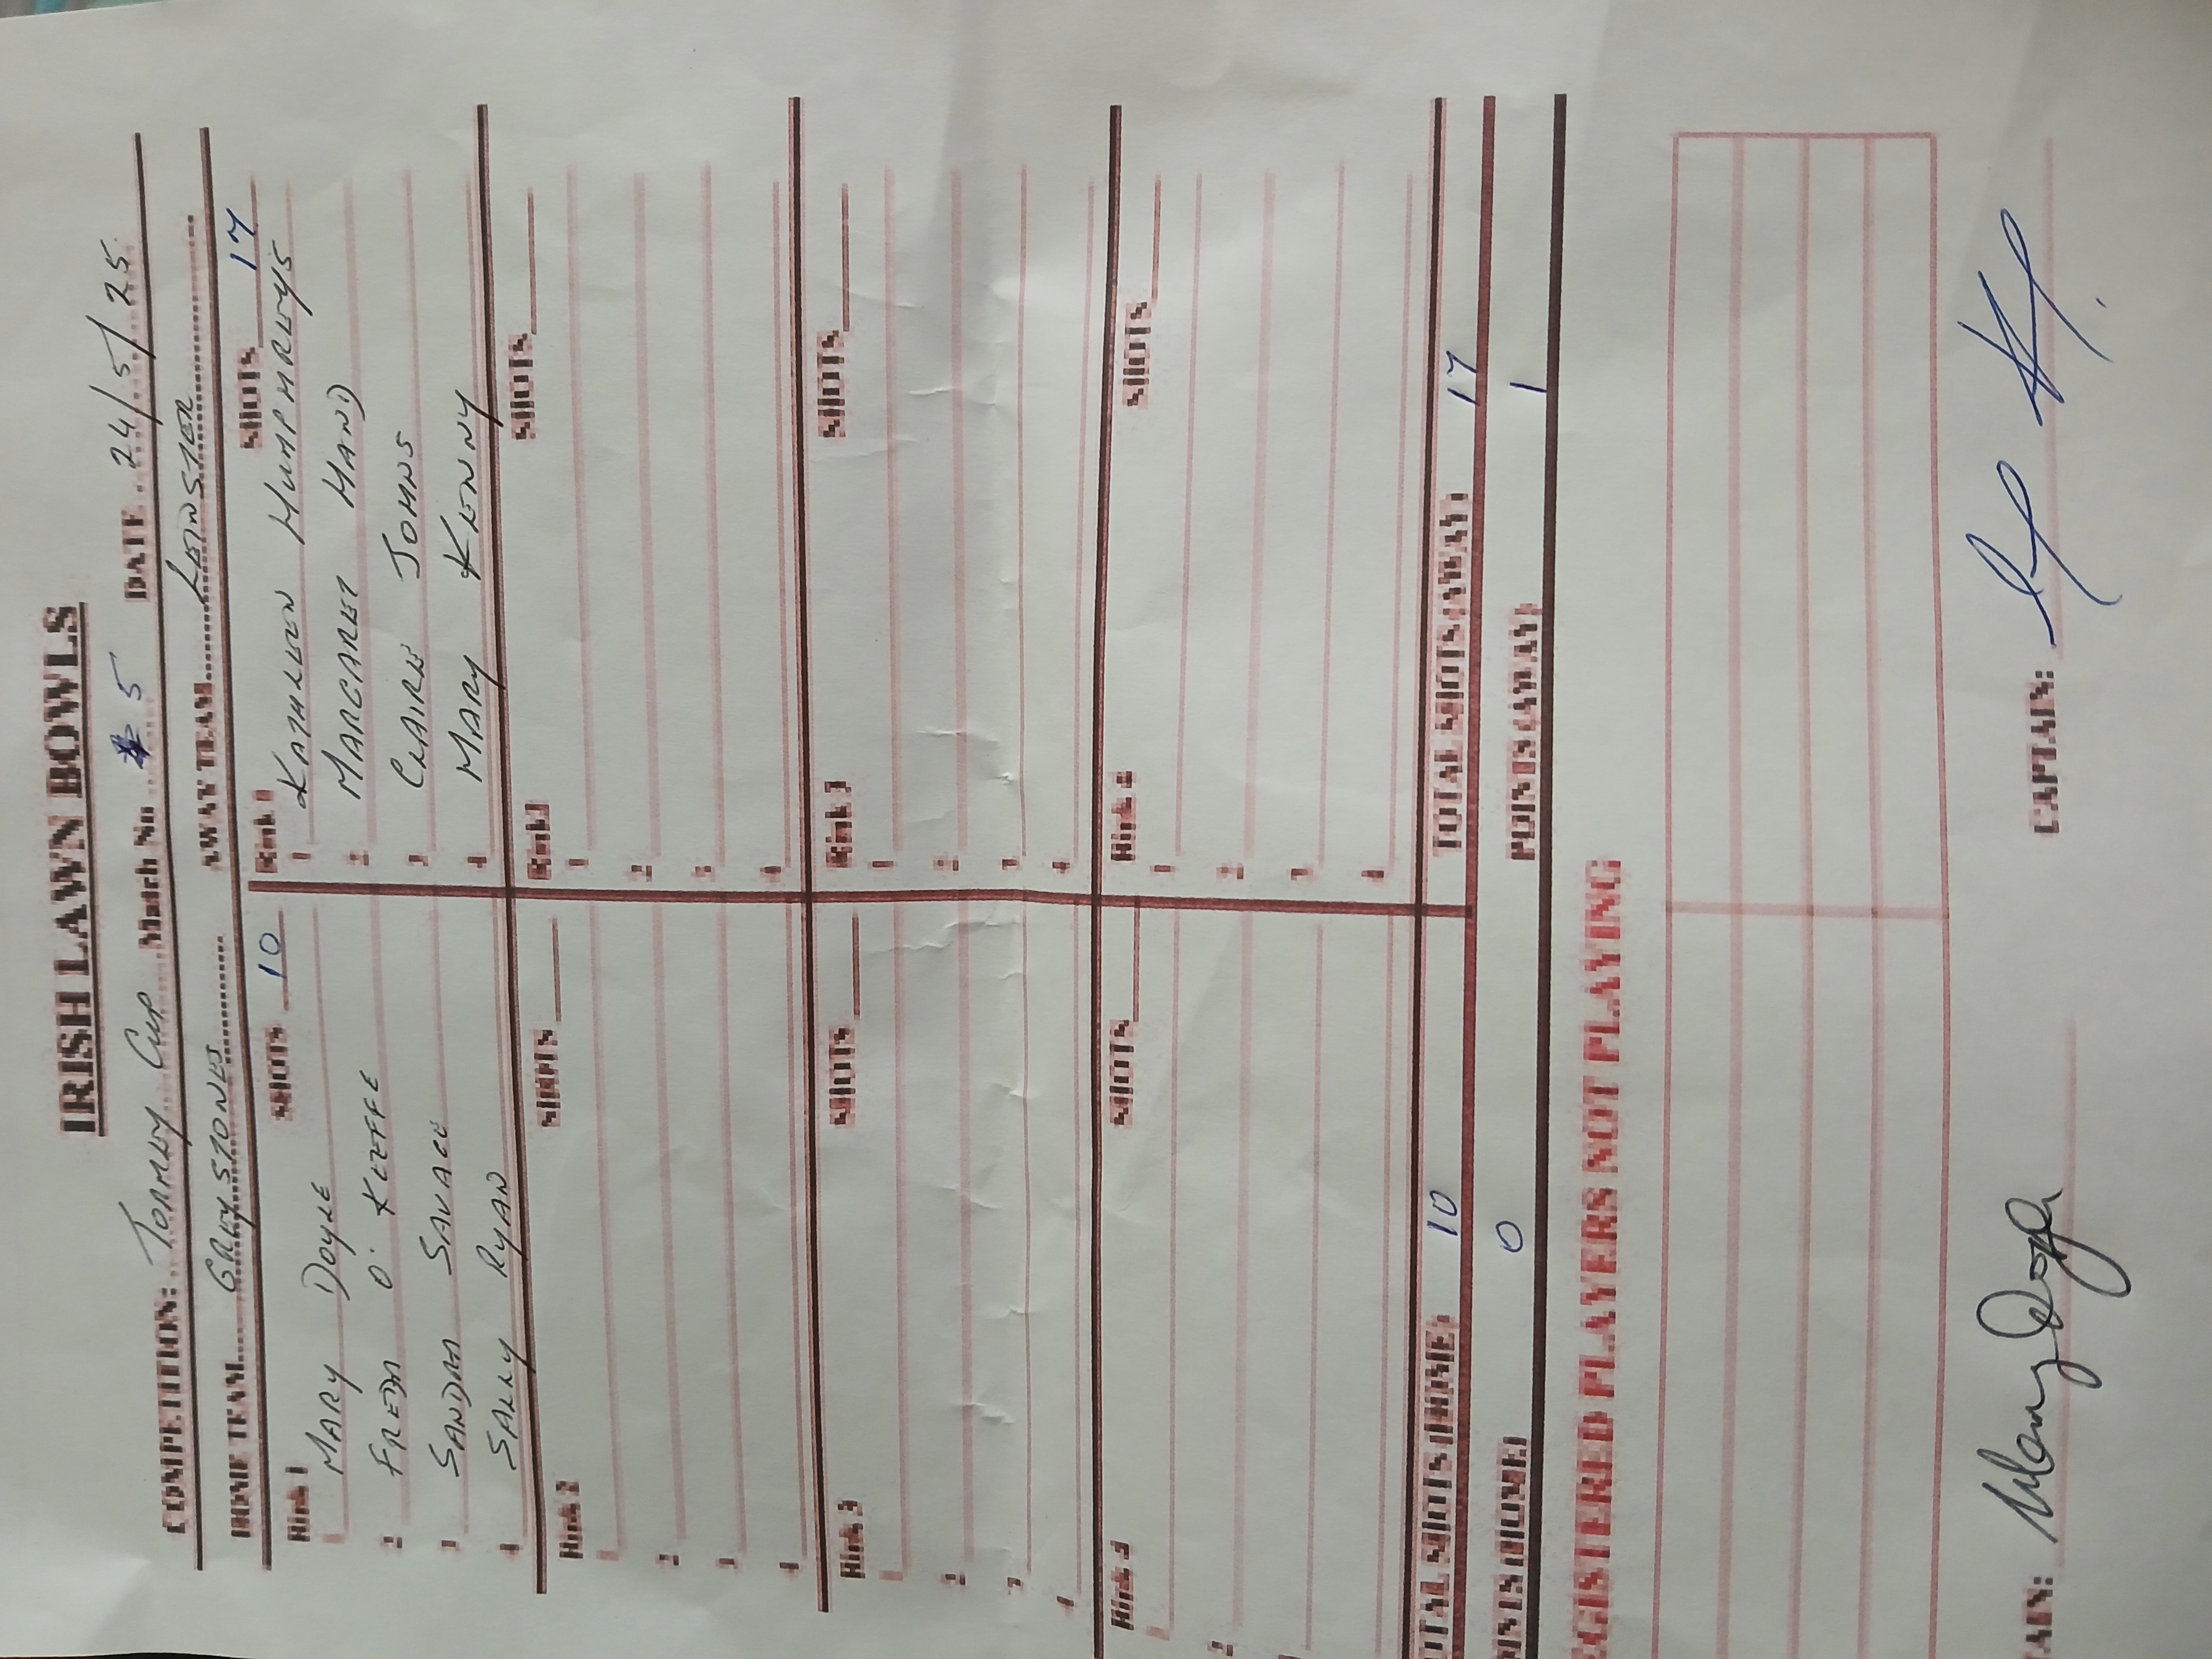 IRISH LAWN BOWLS
COMPETITION: TORMEY CUP Match No 5 DATE 24/5/25
HOME TEAM GREYSTONES AWAY TEAM LEINSTER
Rink 1 SHOTS 10 Rink 1 SHOTS 17
1 MARY DOYLE 1 KATHLEEN HUMPHREYS
2 FREDA O'KEEFFE 2 MARGARET HAND
3 SANDRA SAVAGE 3 CLAIRE JOHNS
4 SALLY RYAN 4 MARY KENNY
Rink 2 SHOTS Rink SHOTS
1 1
2 2
3 3
4 4
Rink 3 SHOTS Rink 3 SHOTS
1 1
2 2
3 3
4 4
Rink 4 SHOTS Rink SHOTS
1 1
2 2
3
4
TOTAL SHOTS (HOME) 10 TOTAL SHOTS (AWAY) 17
POINTS (HOME) 0 POINTS (AWAY) 1
REGISTERED PLAYERS NOT PLAYING
CAPTAIN: Mary Doyle CAPTAIN: